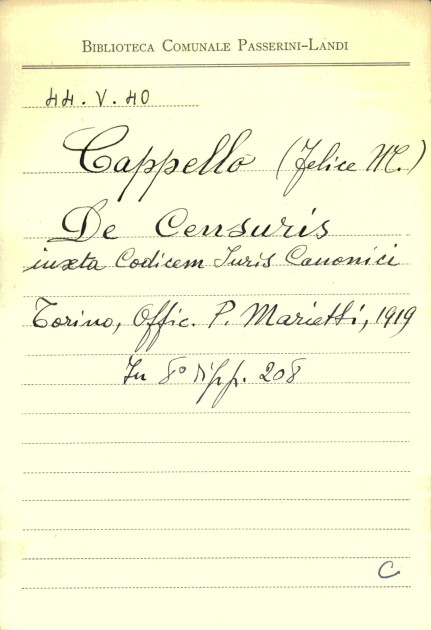 BIBLIOTECA COMUNALE PASSERINI-LANDI
44.V.40
Cappello (Felice M.)
De Censuris
iuxta Codicem Iuris Canonici
Torino, Offic. P. Marietti, 1919
In 8° di pp. 208
C